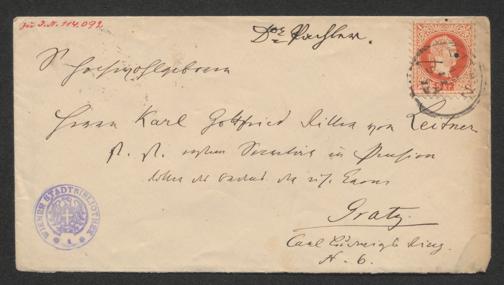 zu I.N. 114.092
Dr. Pachler.
Sr Hochwohlgeboren
Herrn Karl Gottfried Ritter von Leitner
k. k. Secretär in Pension
Gratz.
Carl Ludwigs Ring.
N. 6.
WIENER STADTBIBLIOTHEK